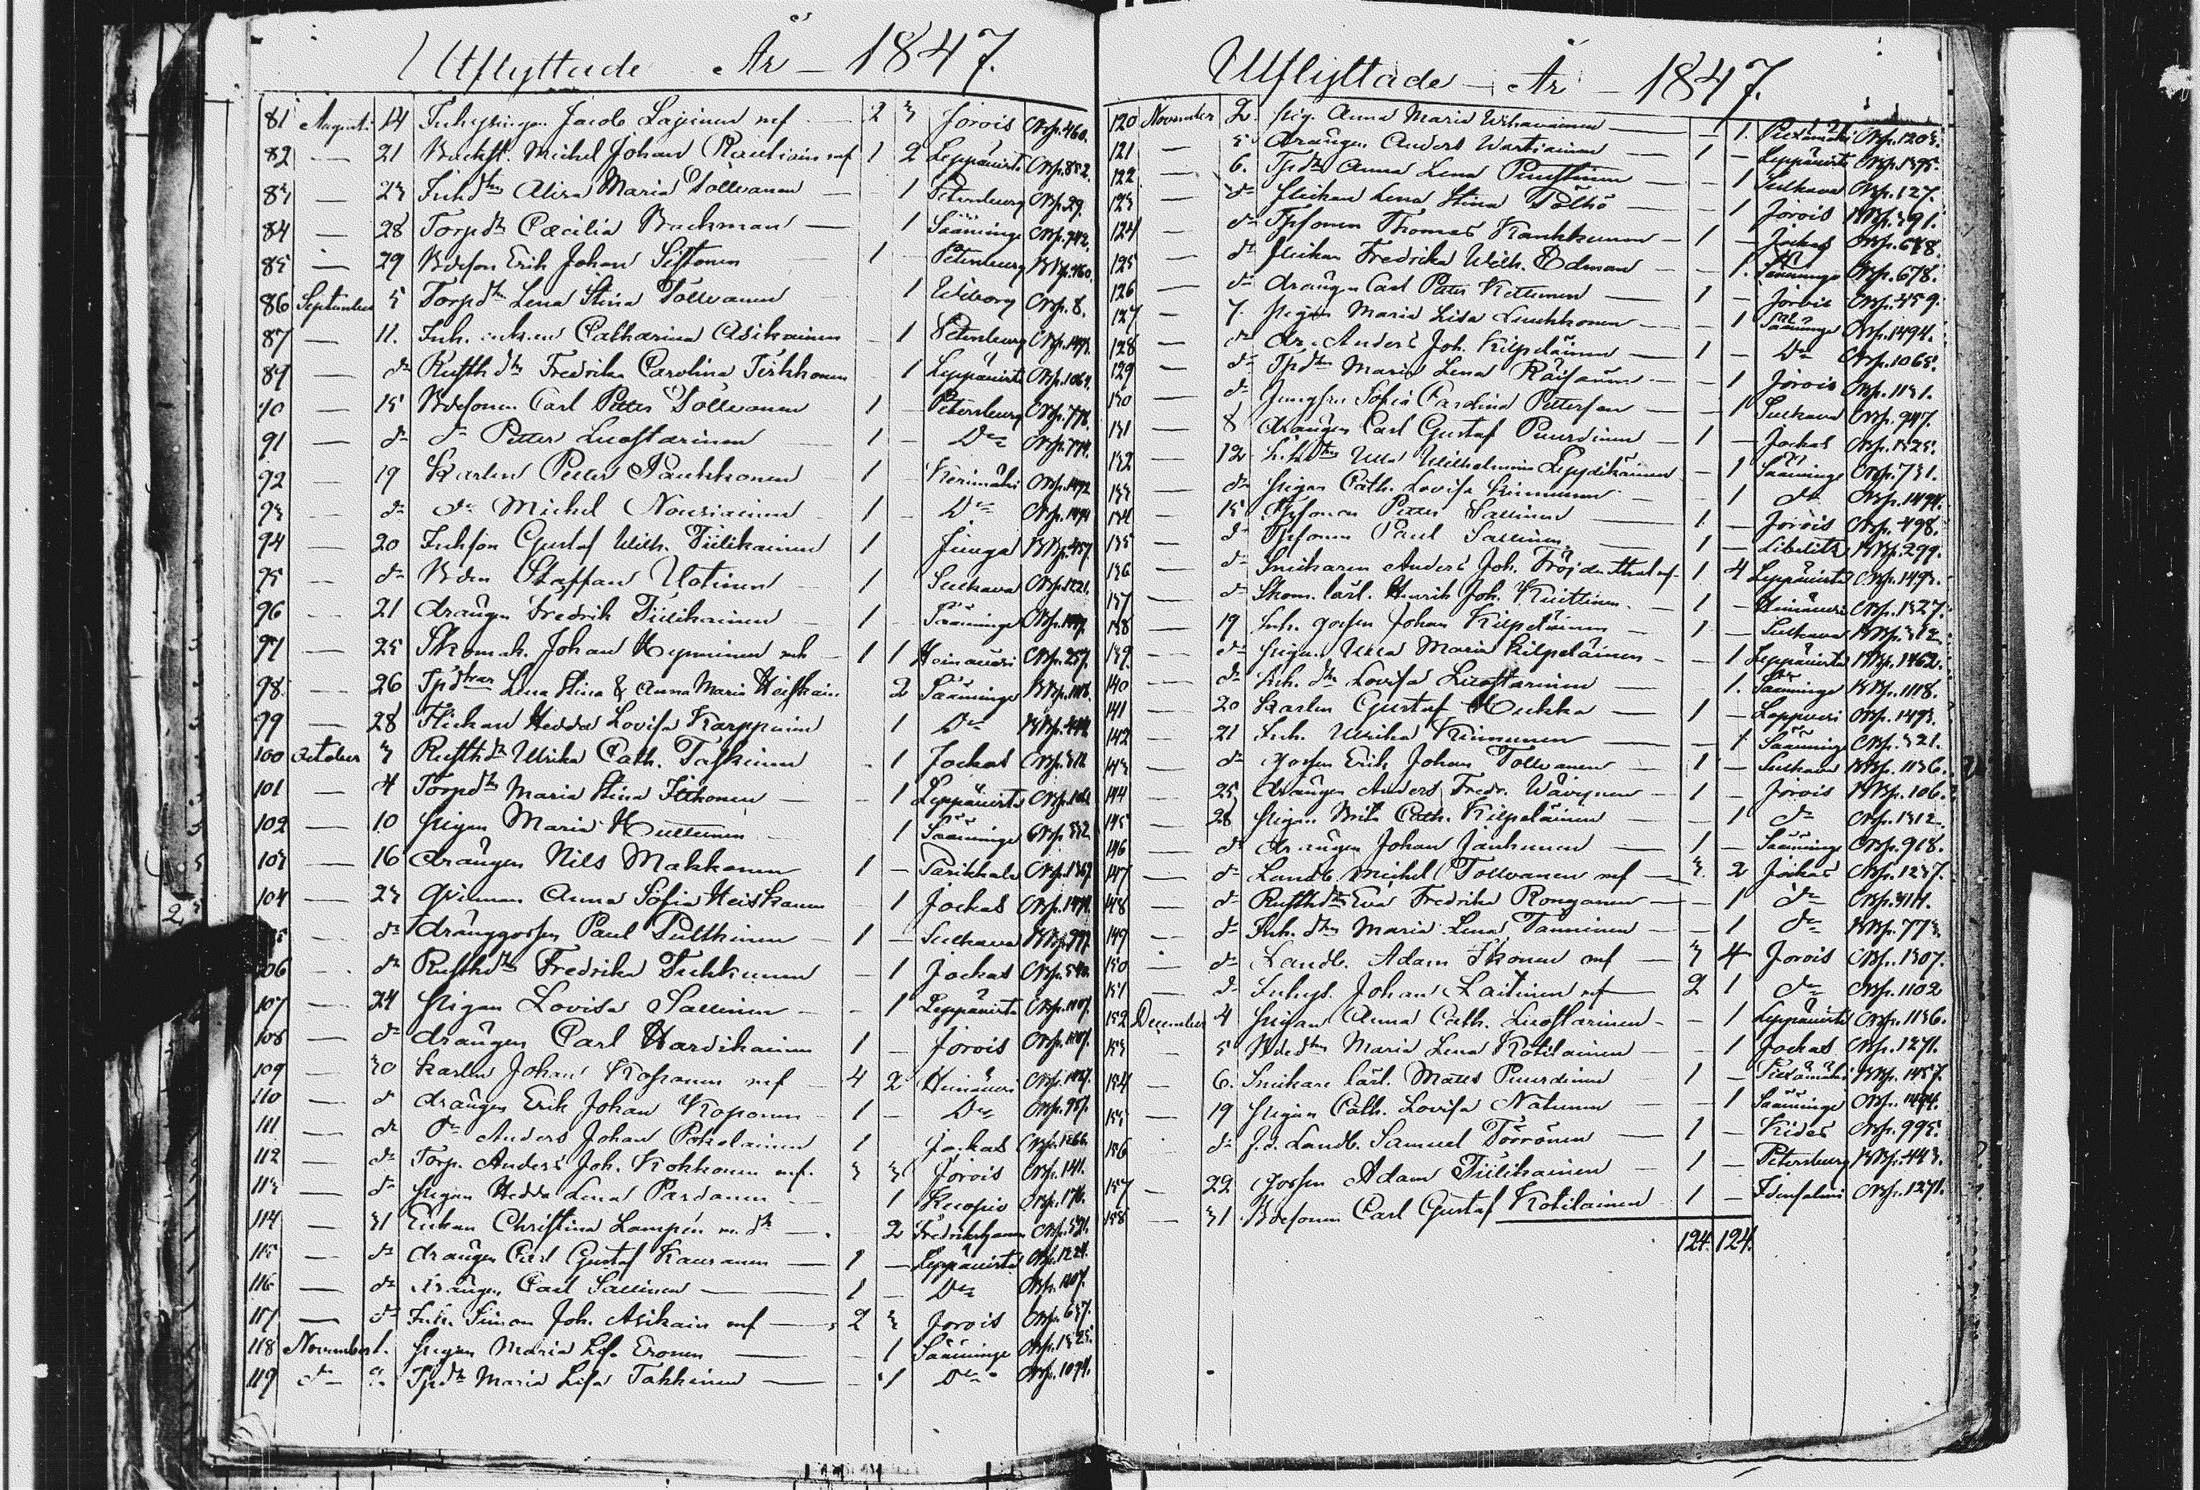 Utflyttade År – 1847.
81 Augusti 14 Inhysingen Jacob Lajinen mf 2 3 Jorois CBp. 460.
82 — 21 Michel Johan mf 1 2 Leppävirta CBp. 852.
83 — 23 Inh dtr Maria Tolvanen — 1 Petersburg CBp. 29.
84 — 28 Torp dr Cæcilia Backman — 1 Sääminge CBp. 742.
85 — 29 Bdeson Erik Johan 1 — Petersburg BBp. 460.
86 September 5 Torp dtr Lena Stina Tolvanen 1 Wiborg CBp. 8.
87 — 11. Inh. Catharina Asikainen — 1 Petersburg
89 — do Rusth dtr Fredrika Carolina 1 Leppävirta
90 — 15 Bdesonen Carl Petter Tolvanen 1 — Petersburg CBp. 778.
91 — do do Petter Luostarinen 1 — Do CBp. 774.
92 — 19 Karlen Petter Pankkonen 1 — Kerimäki CBp. 1492
93 — do do Michel Nousiainen 1 — Do
94 — 20 Inhson Gustaf Wilh. Tiilikainen 1 Jninga BBp. 457.
95 — do Bden Staffan Uotinen 1 Sulkava CBp. 1221.
96 — 21 drängen Fredrik Tiilikainen 1 — Sääminge
97 — 25 Skomak. Johan Hyvninen mh 1 1 Heinävesi CBp. 257.
98 — 26 Tpdtrar Lena Stina & Anna Maria Heiskain 2 Sääminge
99 — 28 Flickan Hedda Lovisa Karppain 1 Do
100 October 3 Rusthdr Ulrika Cath. Taskinen 1 Jockas
101 — 4 Torpdtr Maria Stina Ikonen — 1 Leppävirta
102 — 10 Pigan Maria Huttunen 1 Sääminge CBp. 332.
103 — 16 drängen Nils Makkonen 1 — Parikkala CBp. 1369
104 — 23 Qvinnan Anna Sofia Heiskanen 1 Jockas
— do dränggossen Paul Pulkkinen 1 — Sulkava
106 — do Rusthdtr Fredrika Tuhkunen — 1 Jockas CBp. 540.
107 — 24 Pigan Lovisa Sallinen — 1 Leppävirta CBp. 1107.
108 — do drängen Carl Hardikainen 1 — Jorois CBp. 1107.
109 — 30 Karlen Johan Kosonen mf — 4 2 Heinävesi
110 — do drängen Erik Johan Koponen — 1 — Do CBp. 957.
111 — do do Anders Johan Pokelainen 1 Jockas CBp. 1266.
112 — do Torp. Anders Joh. Kokkonen mf. 3 3 Jorois CBp. 141.
113 — do Pigan Hedda Lena Pardanen 1 Kuopio CBp. 176.
114 — 31 Enkan Christina Lampén m. dr — 2 Fredrikshamn CBp. 521.
115 — do drängen Carl Gustaf Kauranen — 1 — Leppävirta CBp. 1224.
116 — do drängen Carl Sallinen — 1 — Do CBp. 1107.
117 — do Inh. Simon Joh. Asikain mf — 2 3 Jorois CBp. 637.
118 November 1. Pigan Maria Lisa Eronen — 1 Sääminge CBp. 1325.
119 do Tpdtr Maria Lisa Takkinen — 1 Do CBp. 1094.
Utflyttade – År – 1847.
120 November 2. Pig. Anna Maria — 1. Pieksämäki CBp. 1203.
121 — 5 drängen Anders Wartiainen — 1 — Leppävirta CBp. 1395.
122 — 6. Tpdtr Anna Lena — 1 Sulkava CBp. 127.
123 — do flickan Lena Stina Pölhö — 1 Jorois BBp. 391.
124 — do Tpsonen Thomas Kankkunen — 1 — Jockas CBp. 678.
125 — do flickan Fredrika Wilh. Edman — 1. Sääminge CBp. 678.
126 — do drängen Carl Petter Kettunen — 1 — Jorois CBp. 459.
127 — 7. Pigan Maria Lisa Laukkonen — 1 Sääminge CBp. 1494.
128 — do dr. Anders Joh. Kilpeläinen — 1 — Do CBp. 1065.
129 — do Tpdtr Maria Lena Räisänen — 1 Jorois CBp. 1131.
130 — do Jungfru Sofia Carolina Petterson — 1 Sulkava CBp. 947.
131 — 8 drängen Carl Gustaf Puurdinen — 1 — Jockas CBp. 1325.
132 — 12 Ulla Wilhelmina Leppikäinen — 1 Sääminge CBp. 731.
133 — do Pigan Cath. Lovisa Kinnunen — 1 do CBp. 1494.
134 — 15 Tpsonen Petter Sallinen — 1 — Jorois CBp. 498.
135 — do Tpsonen Paul Sallinen — 1 — Libelits BBp. 299.
136 — do Snickaren Anders Joh. Fröjdenthal mf. 1 4 Leppävirta CBp. 1493.
137 — do Skom. lärl. Henrik Joh. Kuittinen. — 1 — Heinävesi CBp. 1327.
138 — 19 Inh. gossen Johan Kilpeläinen — 1 — Sulkava BBp. 312
139 — do Pigan Ulla Maria Kilpeläinen — 1 Leppävirta BBp. 1462.
140 — do Inh. dtr Lovisa Luostarinen — 1. Sääminge BBp. 1118.
141 — 20 Karlen Gustaf Hukka — 1 — Lappvesi CBp. 1493.
142 — 21 Inh. Ulrika Kinnunen — 1 Sääminge CBp. 321.
143 — do gossen Erik Johan Tolvanen — 1 — Sulkava BBp. 1136.
144 — 25 drängen Anders Fredr. Wäyrynen — 1 — Jorois BBp. 106.
145 — 28 Pigan Brita Cath. Kilpeläinen — 1 do CBp. 1312.
146 — do drängen Johan Janhunen — 1 — Sääminge CBp. 918.
147 — do Landb. Michel Tolvanen mf — 3. 2 Jockas CBp. 1237.
148 — do Rusthdtr Eva Fredrika Ronganen — 1 do CBp. 414.
149 — do Inh. dtr Maria Lena Tanninen — 1 do BBp. 773.
150 — do Landb. Adam Ikonen mf — 3 4 Jorois CBp. 1307.
151 — do Inhys. Johan Laitinen mf 2 1 do CBp. 1102
152 December 4 Pigan Anna Cath. Luostarinen — 1 Leppävirta CBp. 1136.
153 — 5 Bdedtr Maria Lena Kotilainen — 1 Jockas CBp. 1271.
154 — 6. Snickare lärl. Matts Puurdinen 1 — Pieksämäki BBp. 1457.
155 — 19 Pigan Cath. Lovisa Natunen — 1 Sääminge CBp. 1494.
156 do f.d. Landb. Samuel Törrönen — 1 — Kides CBp. 995.
157 — 22 gossen Adam Tiilikainen — 1 — Petersburg BBp. 443.
158 — 31 Bdesonen Carl Gustaf Kotilainen 1 — Idensalmi CBp. 1271.
124. 124.